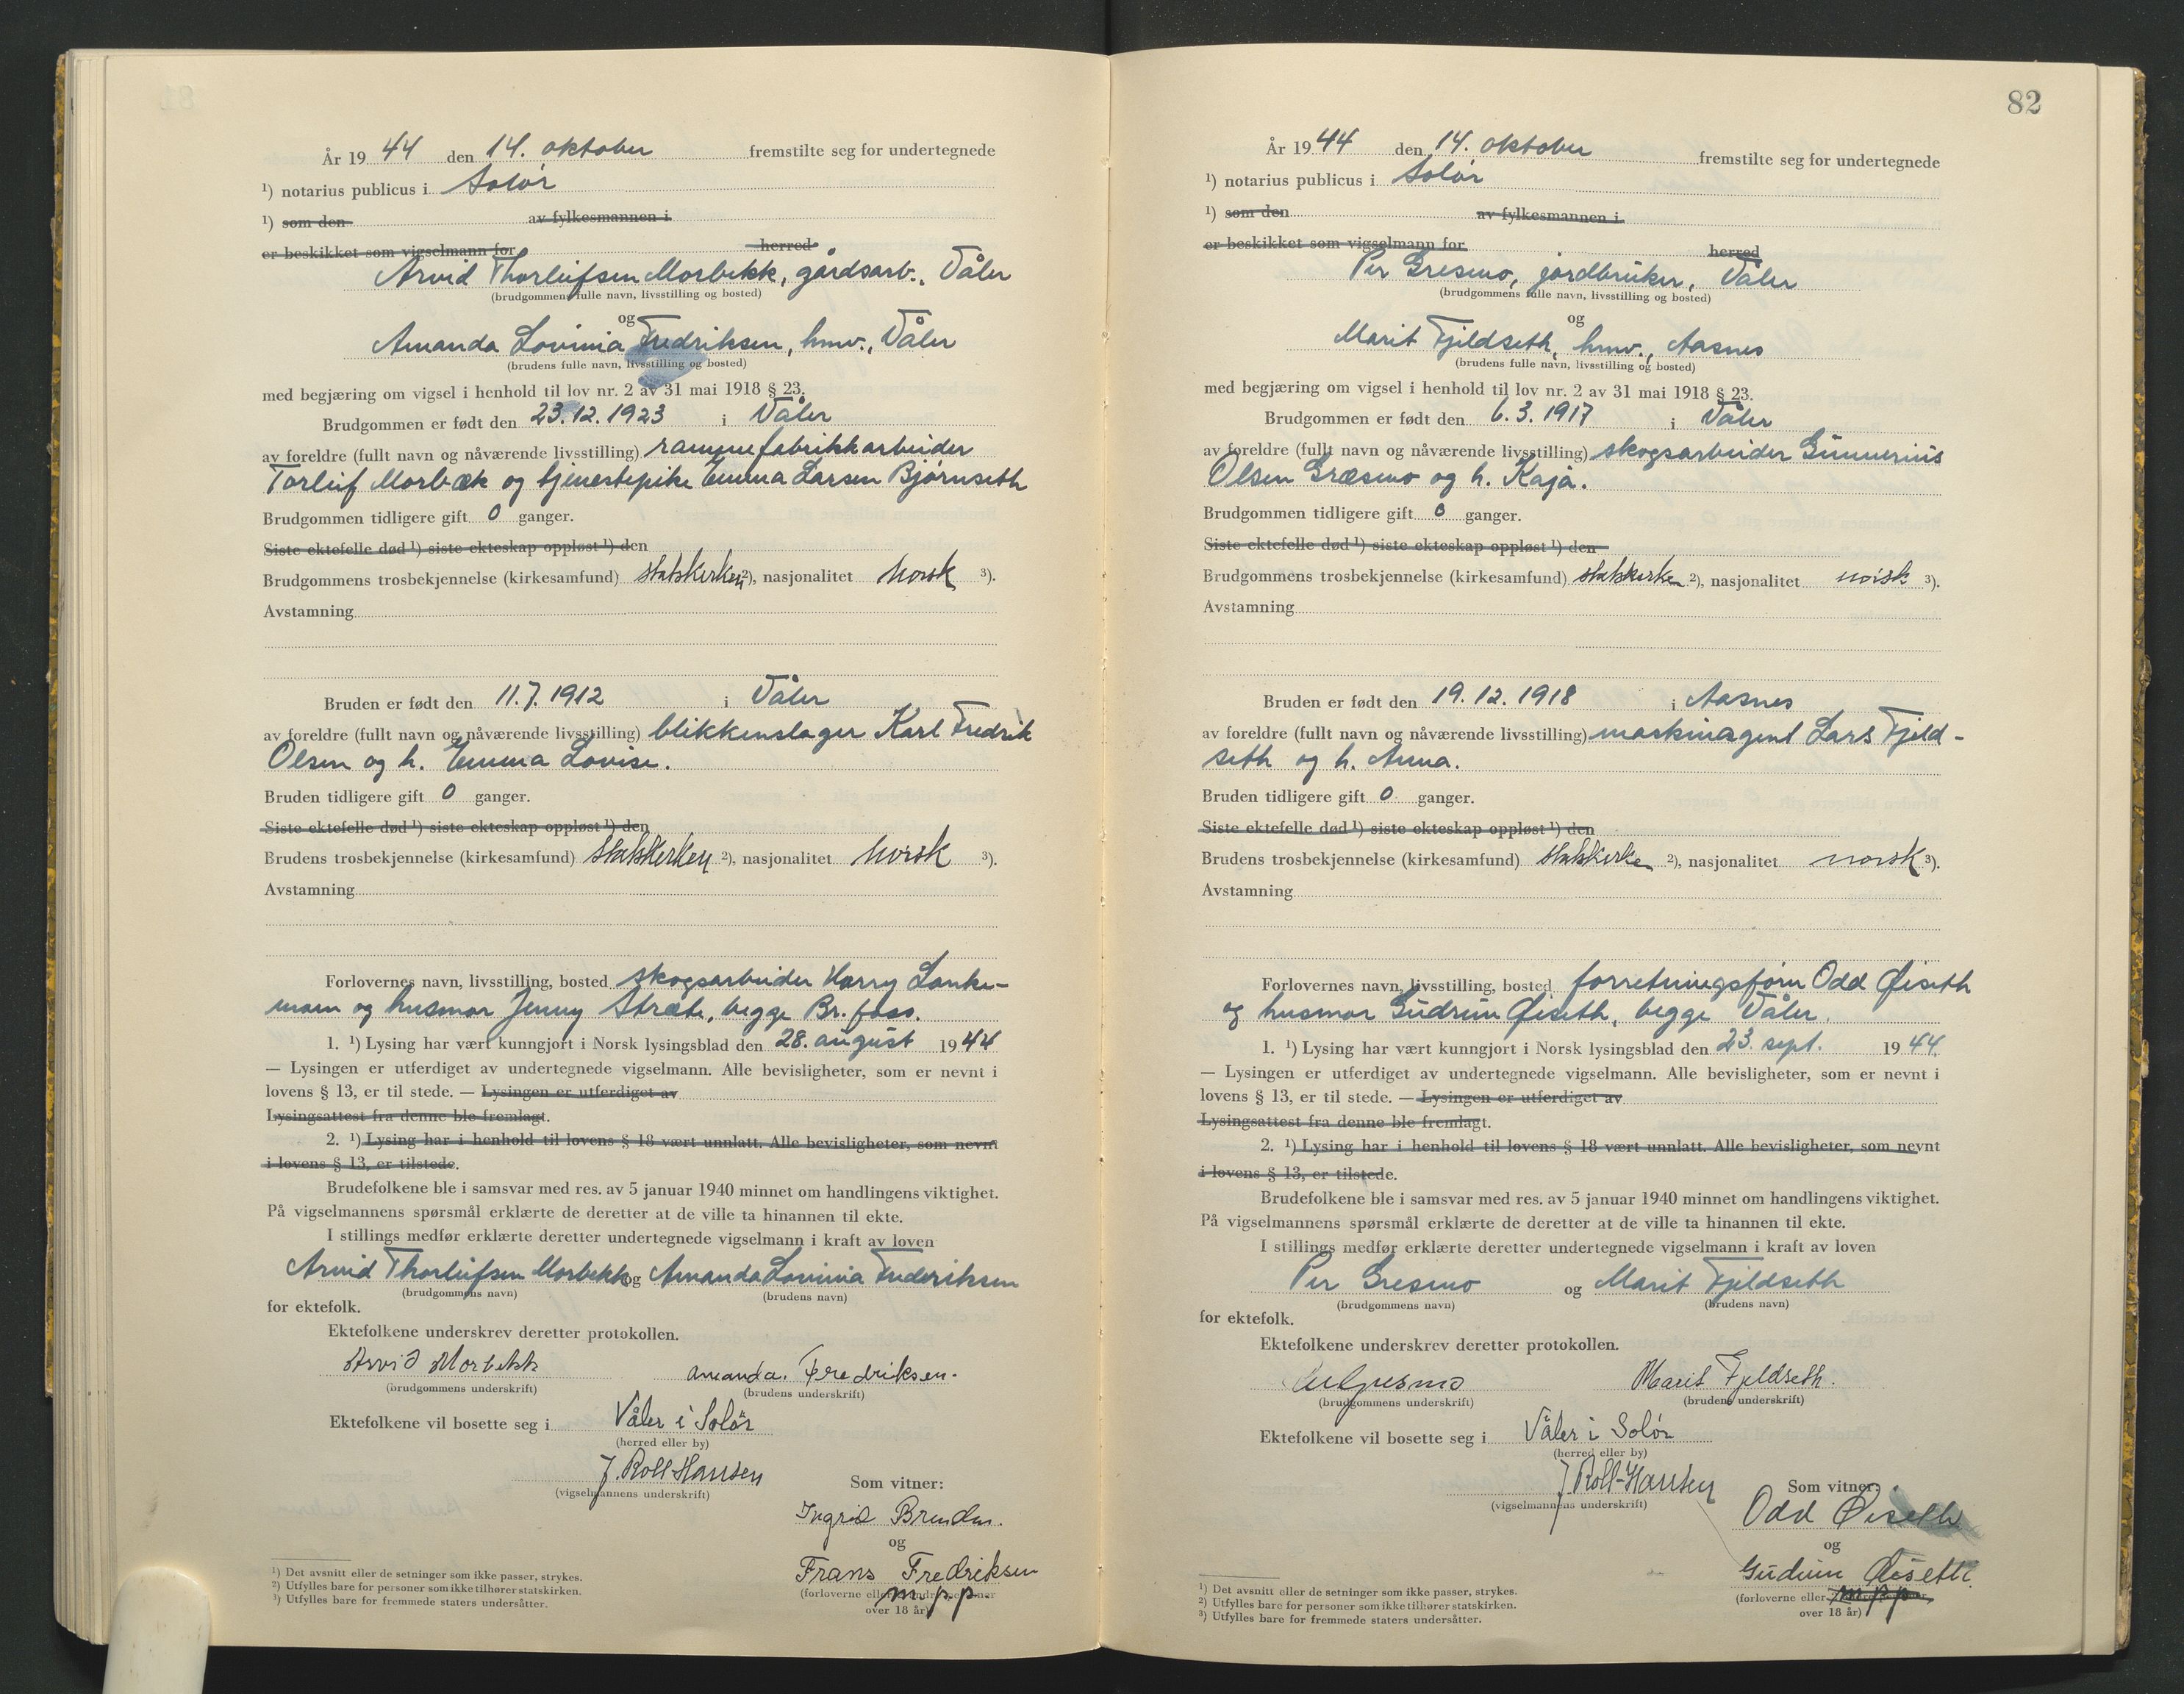 År 19 44 den 14. oktober fremstilte seg for undertegnede
¹) notarius publicus i Solør
¹) som den av fylkesmannen i
er beskikket som vigselmann for herred
Arvid Thorleifsen Morbekk, gårdsarb., Våler
(brudgommens fulle navn, livsstilling og bosted)
og
Amanda Lovinia Fredriksen, hmv., Våler
(brudens fulle navn, livsstilling og bosted)
med begjæring om vigsel i henhold til lov nr. 2 av 31 mai 1918 § 23.
Brudgommen er født den 23.12.1923 i Våler
av foreldre (fullt navn og nåværende livsstilling) rammefabrikkarbeider
Torleif Morbæk og tjenestepike Emma Larsen Bjørnseth
Brudgommen tidligere gift 0 ganger.
Siste ektefelle død ¹) siste ekteskap oppløst ¹) den
Brudgommens trosbekjennelse (kirkesamfund) statskirken ²), nasjonalitet norsk ³).
Avstamning
Bruden er født den 11.7.1912 i Våler
av foreldre (fullt navn og nåværende livsstilling) blikkenslager Karl Fredrik
Olsen og h. Emma Lovise.
Bruden tidligere gift 0 ganger.
Siste ektefelle død ¹) siste ekteskap oppløst ¹) den
Brudens trosbekjennelse (kirkesamfund) statskirken ²), nasjonalitet norsk ³).
Avstamning
Forlovernes navn, livsstilling, bosted skogsarbeider Harry Lanke-
mam og husmor Jenny Stræte, begge Br.foss.
1. ¹) Lysing har vært kunngjort i Norsk lysingsblad den 28. august 19 44
— Lysingen er utferdiget av undertegnede vigselmann. Alle bevisligheter, som er nevnt i
lovens § 13, er til stede. — Lysingen er utferdiget av
Lysingsattest fra denne ble fremlagt.
2. ¹) Lysing har i henhold til lovens § 18 vært unnlatt. Alle bevisligheter, som nevnt
i lovens § 13, er tilstede.
Brudefolkene ble i samsvar med res. av 5 januar 1940 minnet om handlingens viktighet.
På vigselmannens spørsmål erklærte de deretter at de ville ta hinannen til ekte.
I stillings medfør erklærte deretter undertegnede vigselmann i kraft av loven
Arvid Thorleifsen Morbekk og Amanda Lovinia Frederiksen
(brudgommens navn) (brudens navn)
for ektefolk.
Ektefolkene underskrev deretter protokollen.
Arvid Morbekk Amanda. Fredriksen.
(brudgommens underskrift) (brudens underskrift)
Ektefolkene vil bosette seg i Våler i Solør
(herred eller by)
J. Roll-Hansen
(vigselmannens underskrift)
Som vitner:
Ingrid Brenden.
og
Frans Fredriksen
m.p.p.
(forloverne eller andre personer
over 18 år)
¹) Det avsnitt eller de setninger som ikke passer, strykes.
²) Utfylles bare for personer som ikke tilhører statskirken.
³) Utfylles bare for fremmede staters undersåtter.
82
År 19 44 den 14. oktober fremstilte seg for undertegnede
¹) notarius publicus i Solør
¹) som den av fylkesmannen i
er beskikket som vigselmann for herred
Per Gresmo, jordbruker, Våler
(brudgommens fulle navn, livsstilling og bosted)
og
Marit Fjeldseth, hmv., Aasnes
(brudens fulle navn, livsstilling og bosted)
med begjæring om vigsel i henhold til lov nr. 2 av 31 mai 1918 § 23.
Brudgommen er født den 6.3.1917 i Våler
av foreldre (fullt navn og nåværende livsstilling) skogsarbeider Gunnerius
Olsen Græsmo og h. Kaja.
Brudgommen tidligere gift 0 ganger.
Siste ektefelle død ¹) siste ekteskap oppløst ¹) den
Brudgommens trosbekjennelse (kirkesamfund) statskirken ²), nasjonalitet norsk ³).
Avstamning
Bruden er født den 19.12.1918 i Aasnes
av foreldre (fullt navn og nåværende livsstilling) maskinagent Lars Fjeld-
seth og h. Anna.
Bruden tidligere gift 0 ganger.
Siste ektefelle død ¹) siste ekteskap oppløst ¹) den
Brudens trosbekjennelse (kirkesamfund) statskirken ²), nasjonalitet norsk ³).
Avstamning
Forlovernes navn, livsstilling, bosted forretningsførn Odd Øiseth
og husmor Gudrun Øiseth, begge Våler.
1. ¹) Lysing har vært kunngjort i Norsk lysingsblad den 23. sept. 19 44.
— Lysingen er utferdiget av undertegnede vigselmann. Alle bevisligheter, som er nevnt i
lovens § 13, er til stede. — Lysingen er utferdiget av
Lysingsattest fra denne ble fremlagt.
2. ¹) Lysing har i henhold til lovens § 18 vært unnlatt. Alle bevisligheter, som nevnt
i lovens § 13, er tilstede.
Brudefolkene ble i samsvar med res. av 5 januar 1940 minnet om handlingens viktighet.
På vigselmannens spørsmål erklærte de deretter at de ville ta hinannen til ekte.
I stillings medfør erklærte deretter undertegnede vigselmann i kraft av loven
Per Gresmo og Marit Fjeldseth
(brudgommens navn) (brudens navn)
for ektefolk.
Ektefolkene underskrev deretter protokollen.
Per Gresmo Marit Fjeldseth.
(brudgommens underskrift) (brudens underskrift)
Ektefolkene vil bosette seg i Våler i Solør
(herred eller by)
J Roll-Hansen
(vigselmannens underskrift)
Som vitner:
Odd Øiseth
og
Gudrun Øiseth.
m.p.p.
(forloverne eller
over 18 år)
¹) Det avsnitt eller de setninger som ikke passer, strykes.
²) Utfylles bare for personer som ikke tilhører statskirken.
³) Utfylles bare for fremmede staters undersåtter.